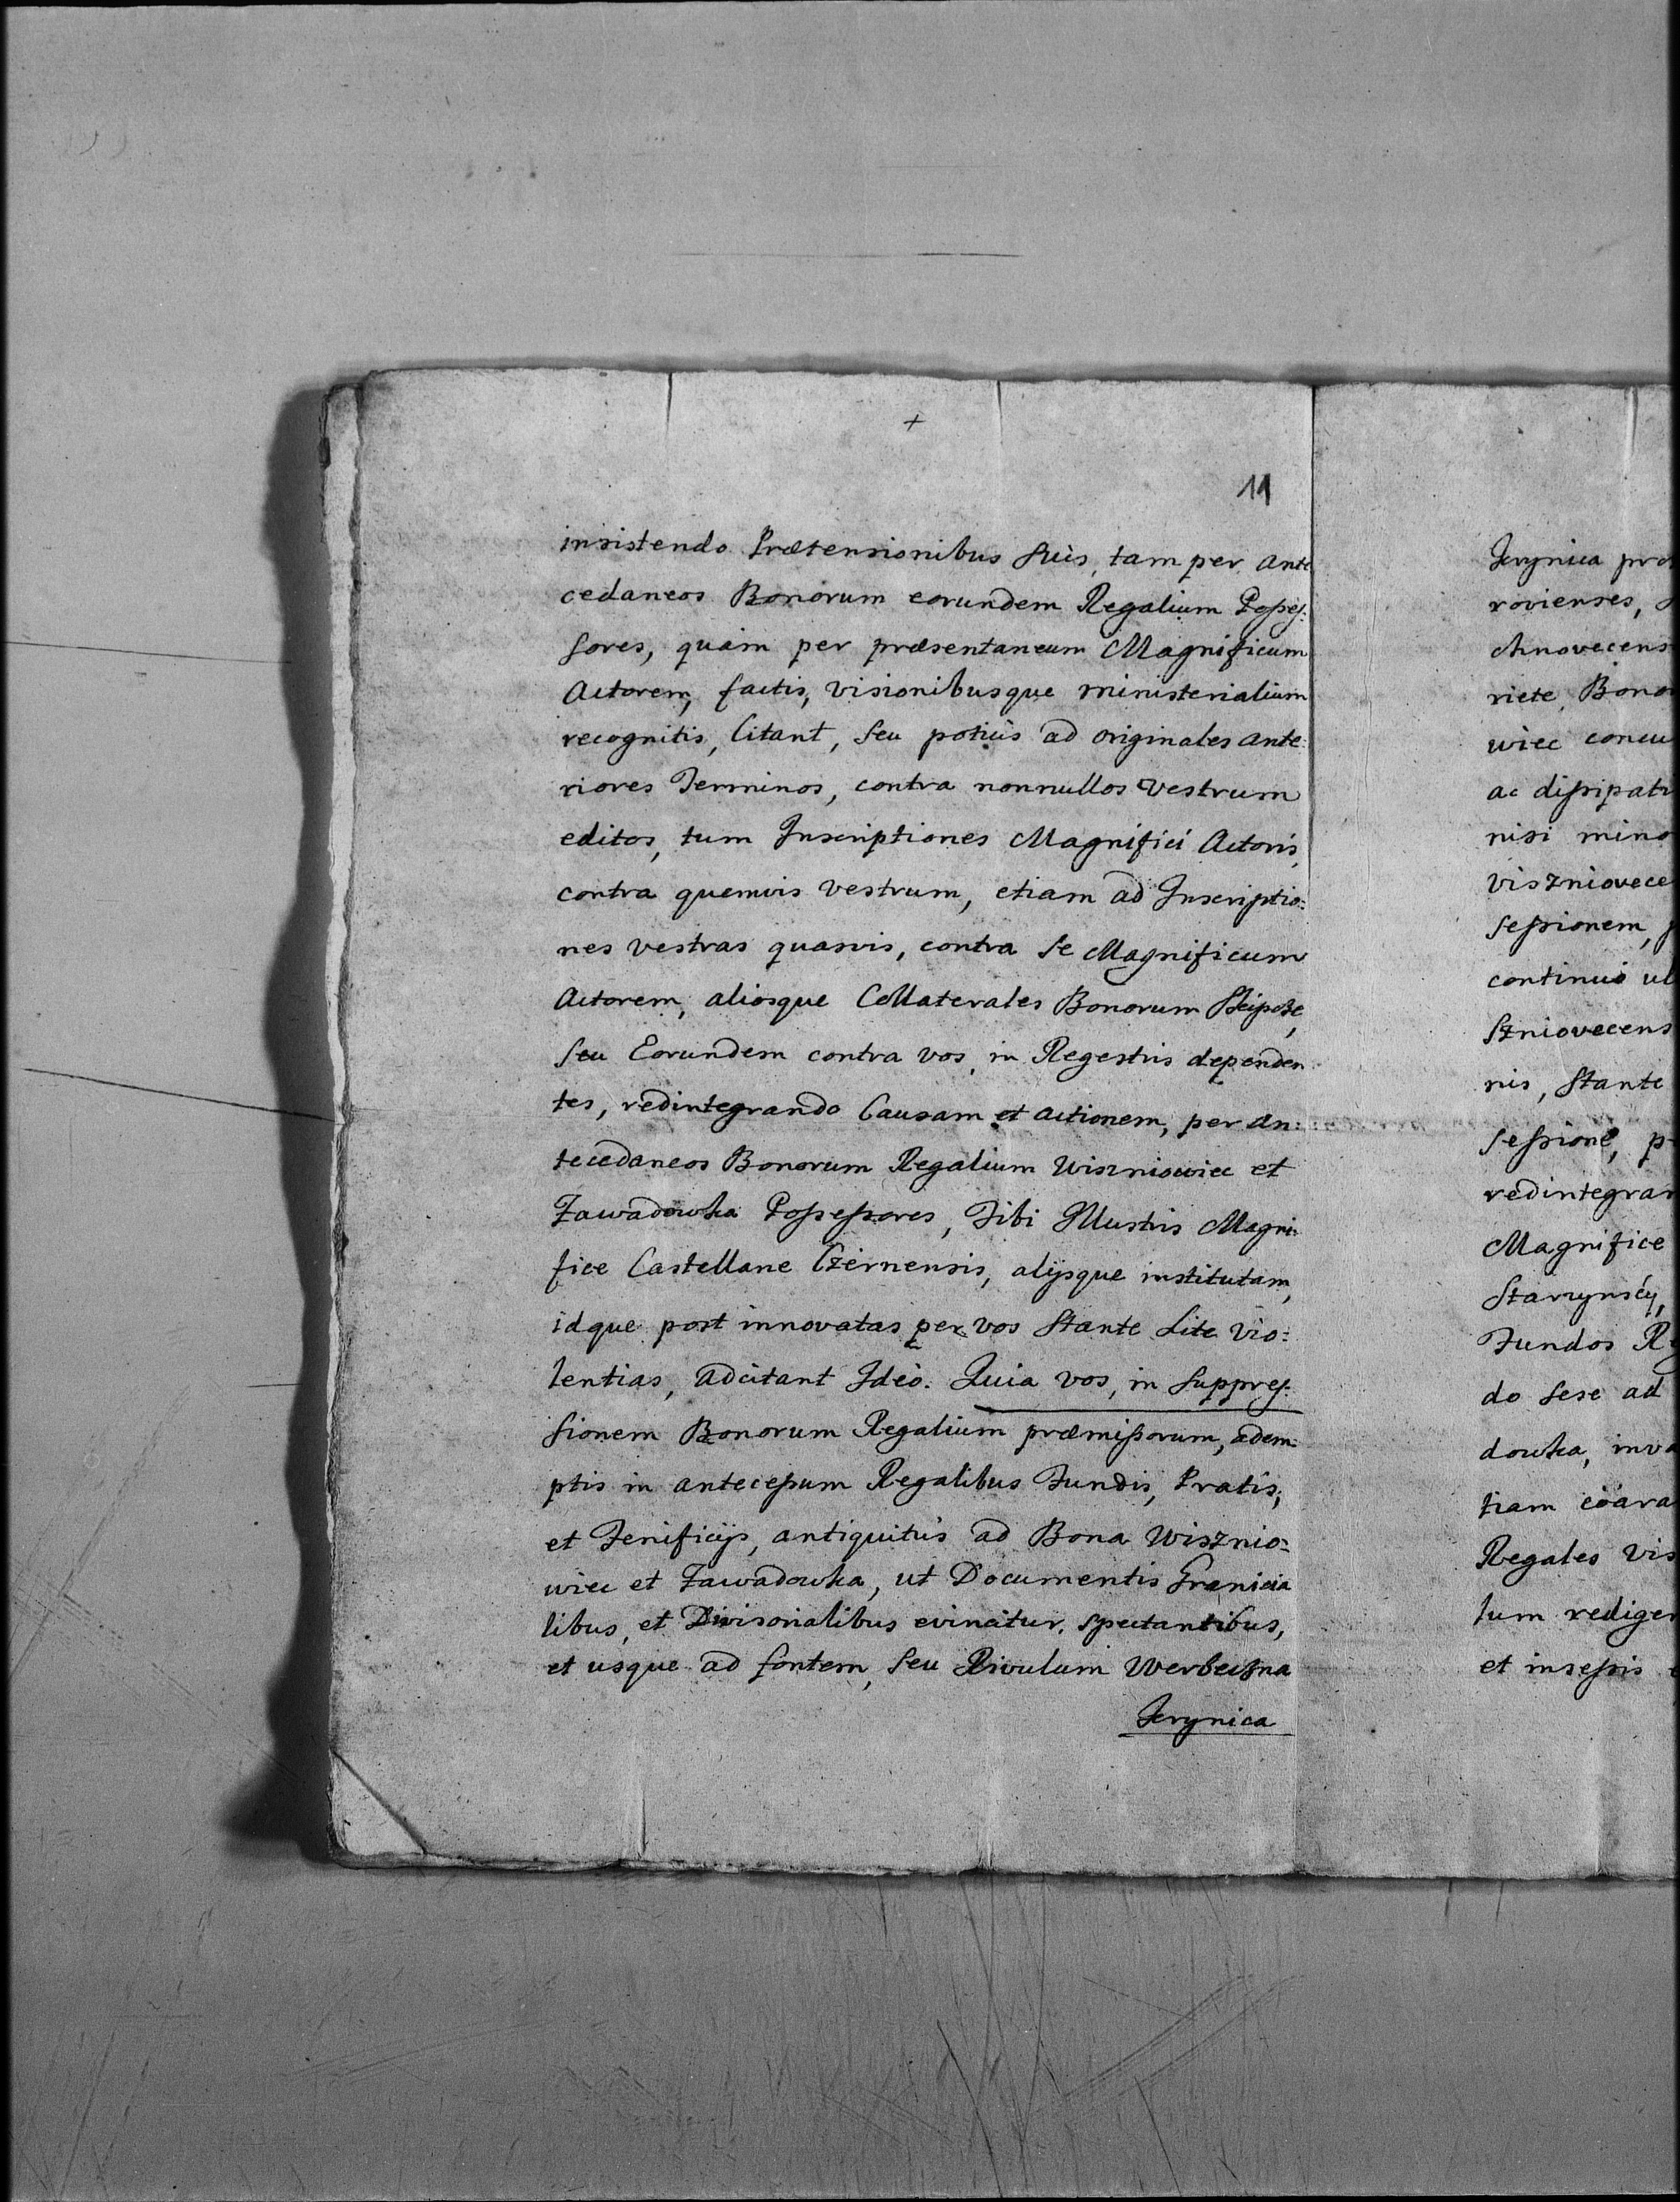 +
11
insistendo Prætensionibus suis, tam per ante
cedaneos Bonorum eorundem Regalium Posses:
sores, quàm per præsentaneum Magnificum
Actorem, factis, visionibusque ministerialium
recognitis, Citant, seu potiùs ad originales ante:
riores Terminos, contra nonnullos Vestrum
editos, tum Inscriptiones Magnifici Actoris,
contra quemvis Vestrum, etiam ad Inscriptio:
nes vestras quasvis, contra se Magnificum
Actorem, aliosque Collaterales Bonorum
seu Eorundem contra vos, in Regestris dependen
tes, redintegrando Causam et actionem, per an:
tecedaneos Bonorum Regalium Wiszniowiec et
Zawadowka Possessores, Tibi Illustris Magni:
fice Castellane Czernensis, alijsque institutam,
idque post innovatas per vos stante Lite vio:
lentias, adcitant Ideò. Quia vos, in suppres:
sionem Bonorum Regalium præmissorum, adem
ptis in antecessum Regalibus Fundis, Pratis,
et Fenificijs, antiquitùs ad Bona Wisznio:
wiec et Zawadowka, ut Documentis Granicia
libus, et Divisorialibus evincitur, spectantibus,
et usque ad fontem, seu Rivulum Werbeczna
Jerynica
Jerynica
rovienses,
chnovecens
riete, Bono
wiec concu
ac dissipati
nisi mino
Viszniovece
sessionem,
continuò ul
szniovecens
nis, stante
sessione, p
redintegran
Magnifice
Starzynscy,
Fundos R
do sese ad
dowka, inva
tiam
Regales Vis
lum rediger
et insessis